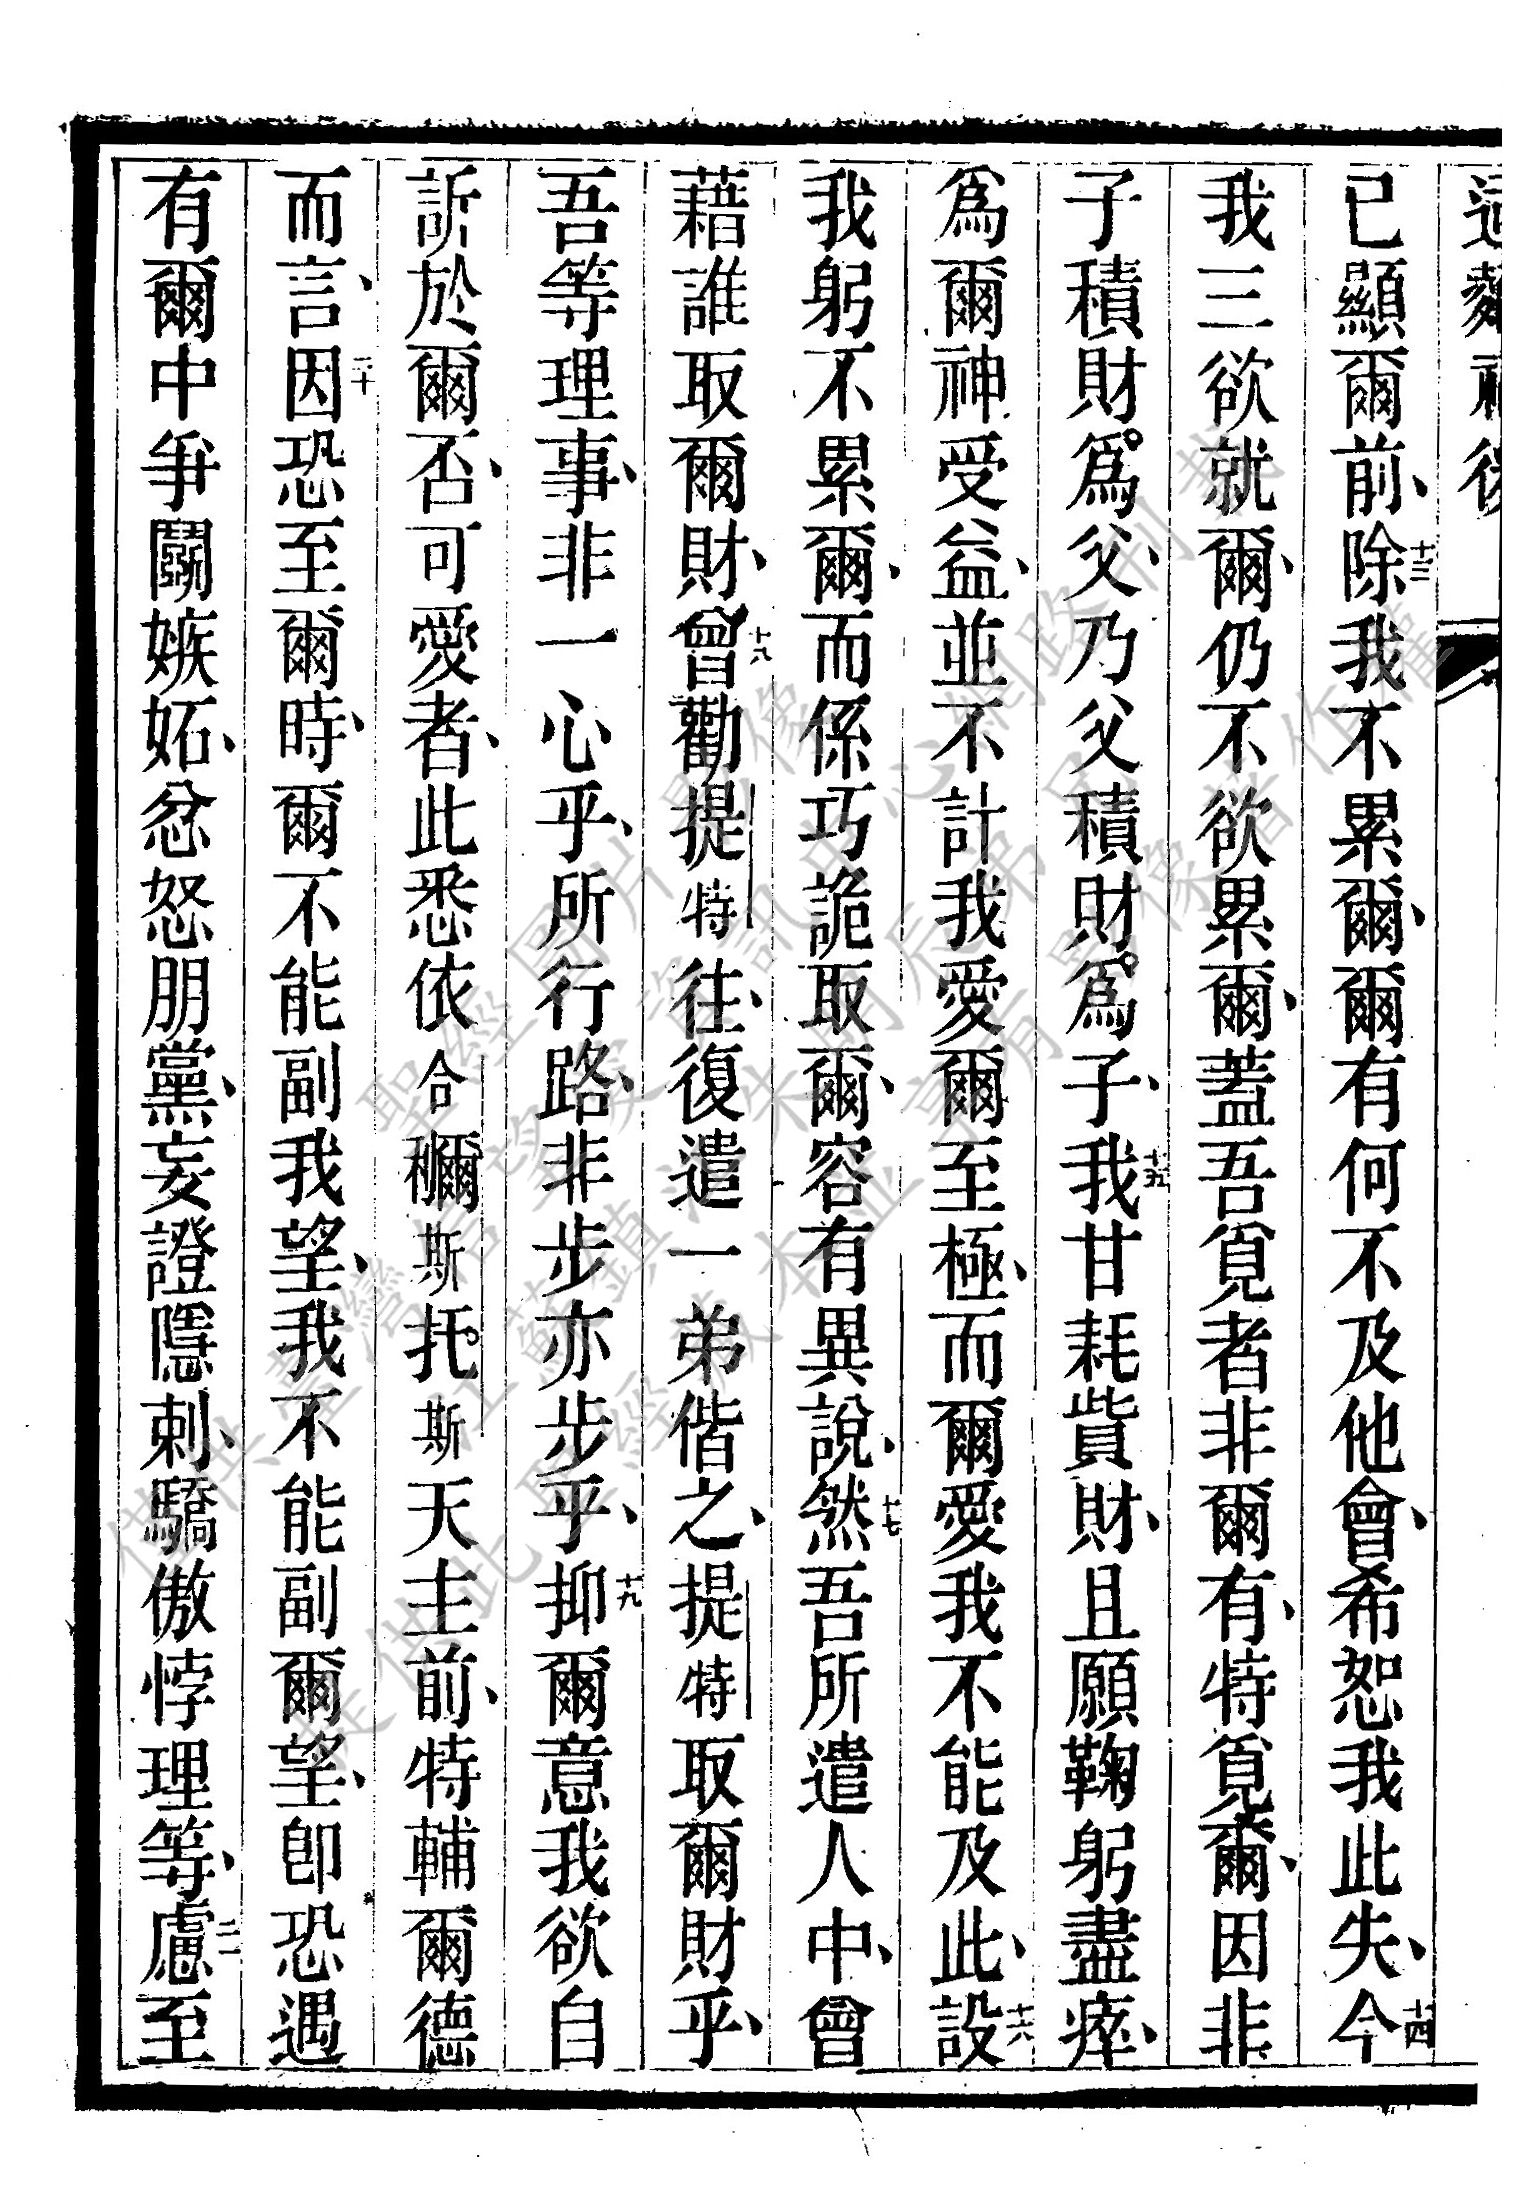 已顯爾前、十三除我不累爾、爾有何不及他會、希恕我此失、十四今
我三欲就爾、仍不欲累爾、蓋吾覓者非爾有、特覓爾、因非
子積財爲父、乃父積財爲子、十五我甘耗貲財、且願鞠躬盡瘁、
爲爾神受益、並不計我愛爾至極、而爾愛我不能及此、十六設
我躬不累爾、而係巧詭取爾、容有異說、十七然吾所遣人中、曾
藉誰取爾財、十八曾勸提特往、復遣一弟偕之、提特取爾財乎、
吾等理事、非一心乎、所行路、非步亦步乎、十九抑爾意我欲自
訢於爾否、可愛者、此悉依合穪斯托斯天主前、特輔爾德
而言、二十因恐至爾時、爾不能副我望、我不能副爾望、卽恐遇
有爾中爭鬬嫉妬、忿怒朋黨、妄證隱刺、驕傲悖理等、二一慮至
僅供臺灣聖經圖片影像